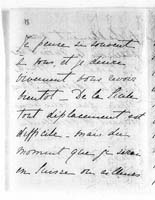 Je pense si souvent
à vous et je désire
vivement vous revoir
bientôt — De la Sicile
tout déplacement est
difficile — mais du
moment que je serai
en Suisse ou